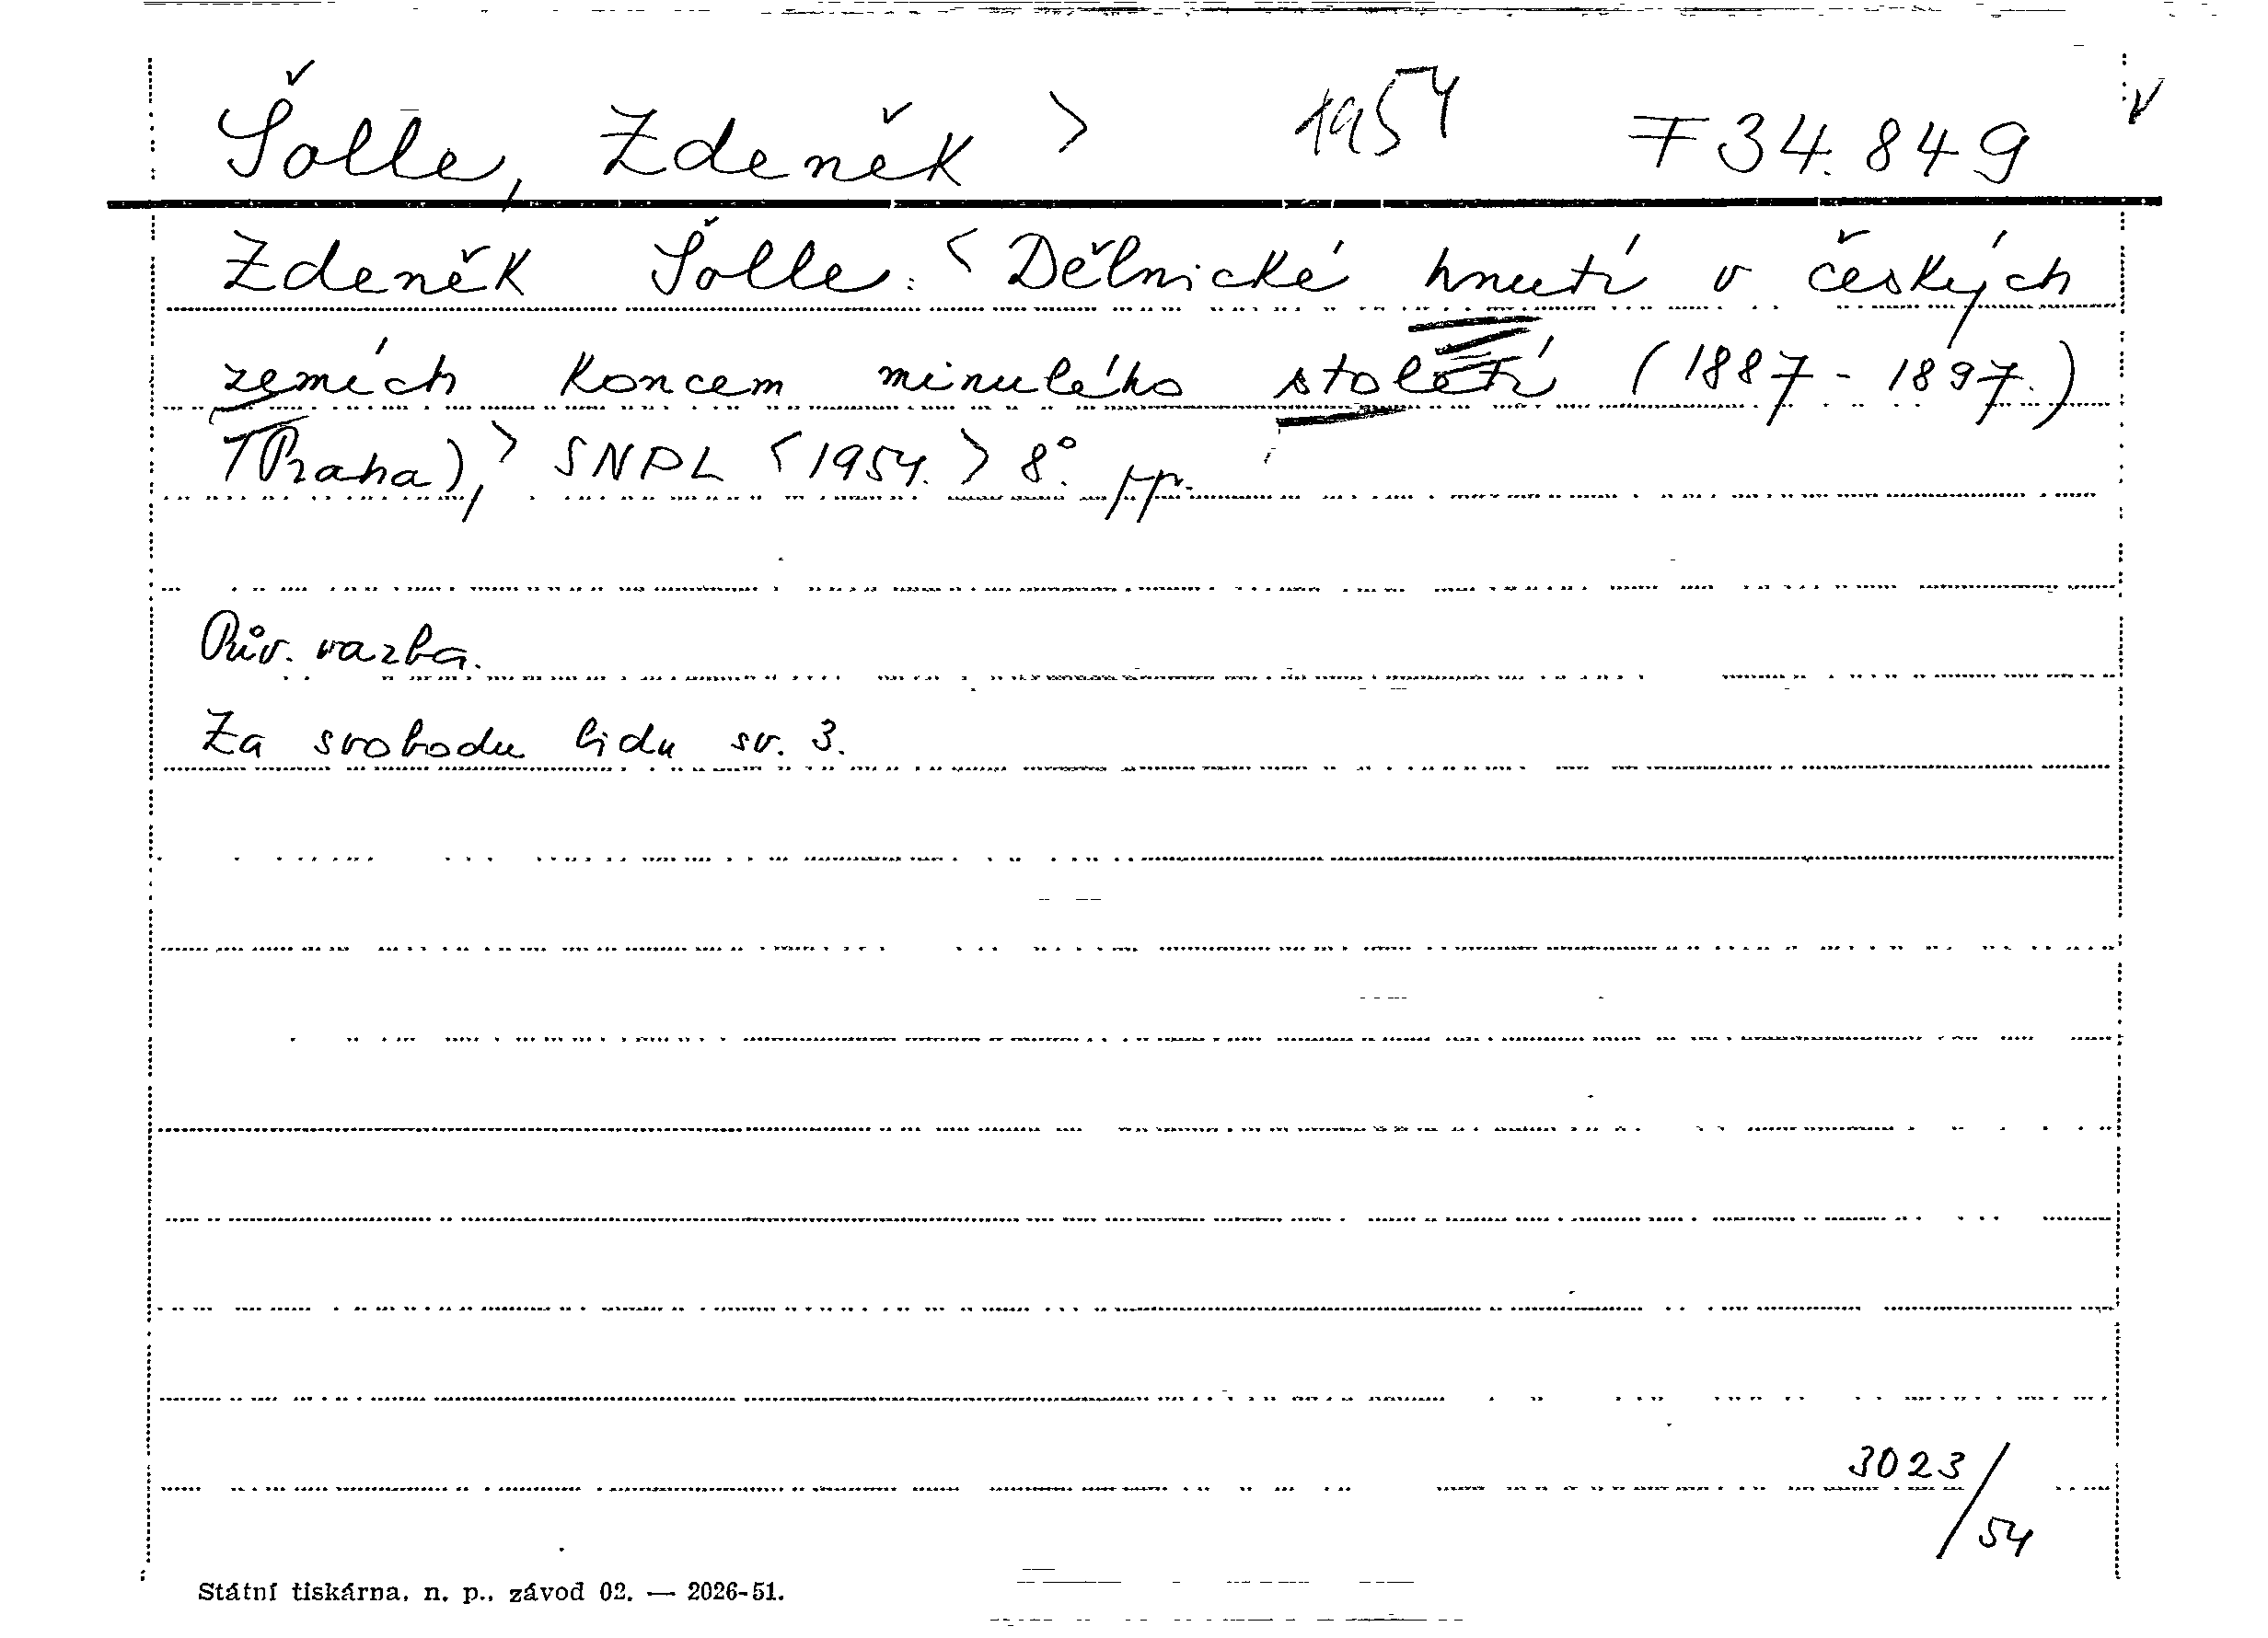 Šolle, Zdeněk > 1954 F 34.849 v
Zdeněk Šolle: < Dělnické hnutí v českých
zemích koncem minulého století (1887-1897.)
(Praha), > SNPL < 1954. > 8°. pp.
Pův. vazba.
Za svobodu lidu sv. 3.
3023/54
Státní tiskárna, n. p., závod 02. — 2026-51.